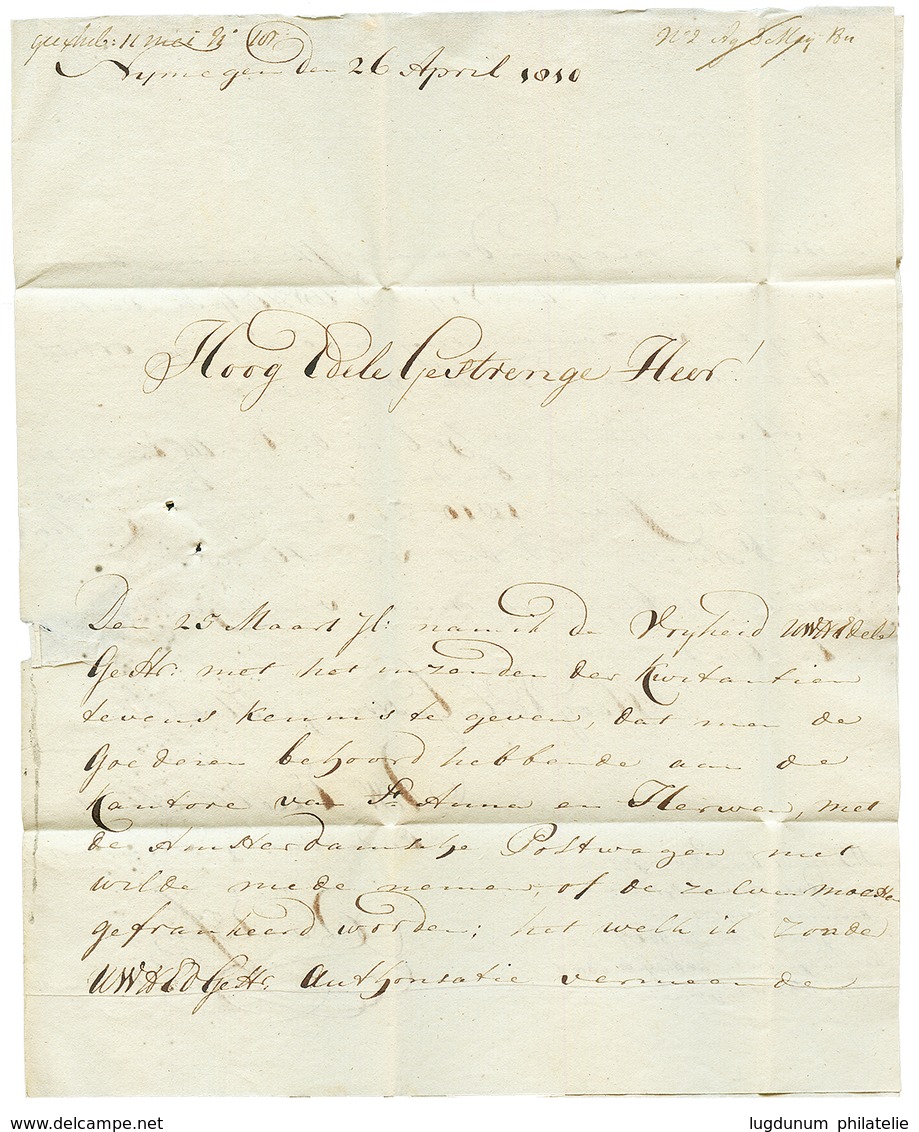 geexhib: 11 mei
N:o 2 Ag 8 May
Nymegen den 26 April 1810
Hoog Edele Gestrenge Heer!
Den 25 Maart jl: nam ik de Vryheid UWHEdele
GeStr: met het inzenden der Kwitantien
tevens kennis te geven, dat men de
Goederen behoord hebbende aan de
Kantore van St Anna en Herwen, met
de Amsterdamsche Postwagen niet
wilde mede nemen, of de zelven moesten
gefrankeerd worden; het welk ik zonde
UWHEdGeStr. Authorisatie vermeende
delcampe.net
lugdunum philatelie